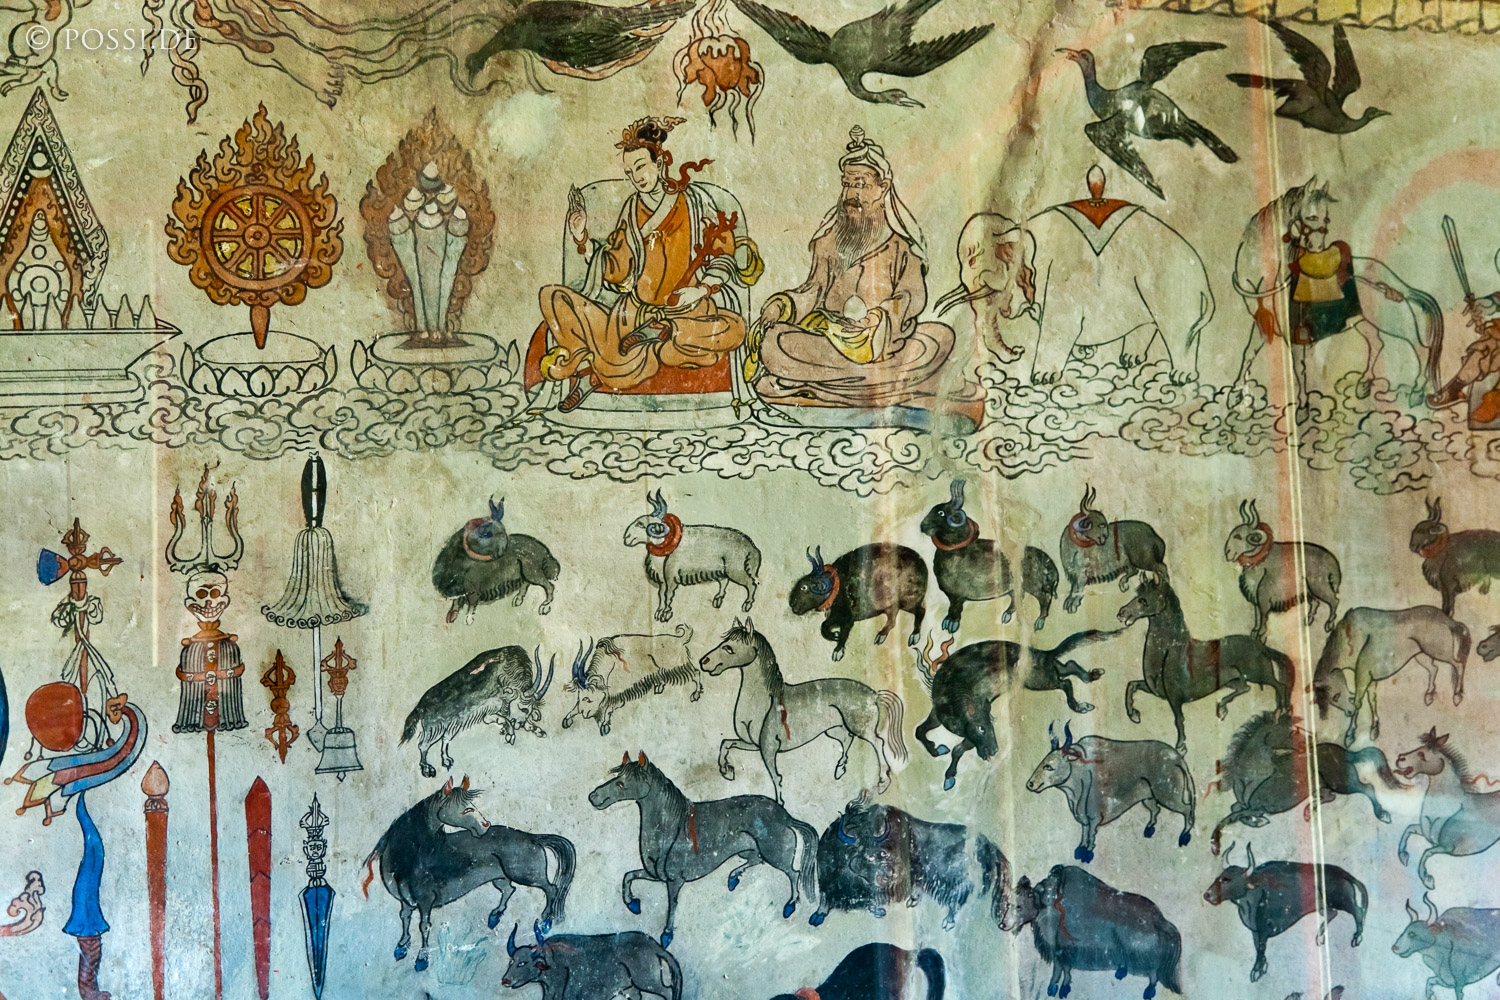 © POSSI.DE